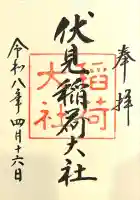 奉拝
伏見稲荷大社
稲荷大社
令和八年四月十六日